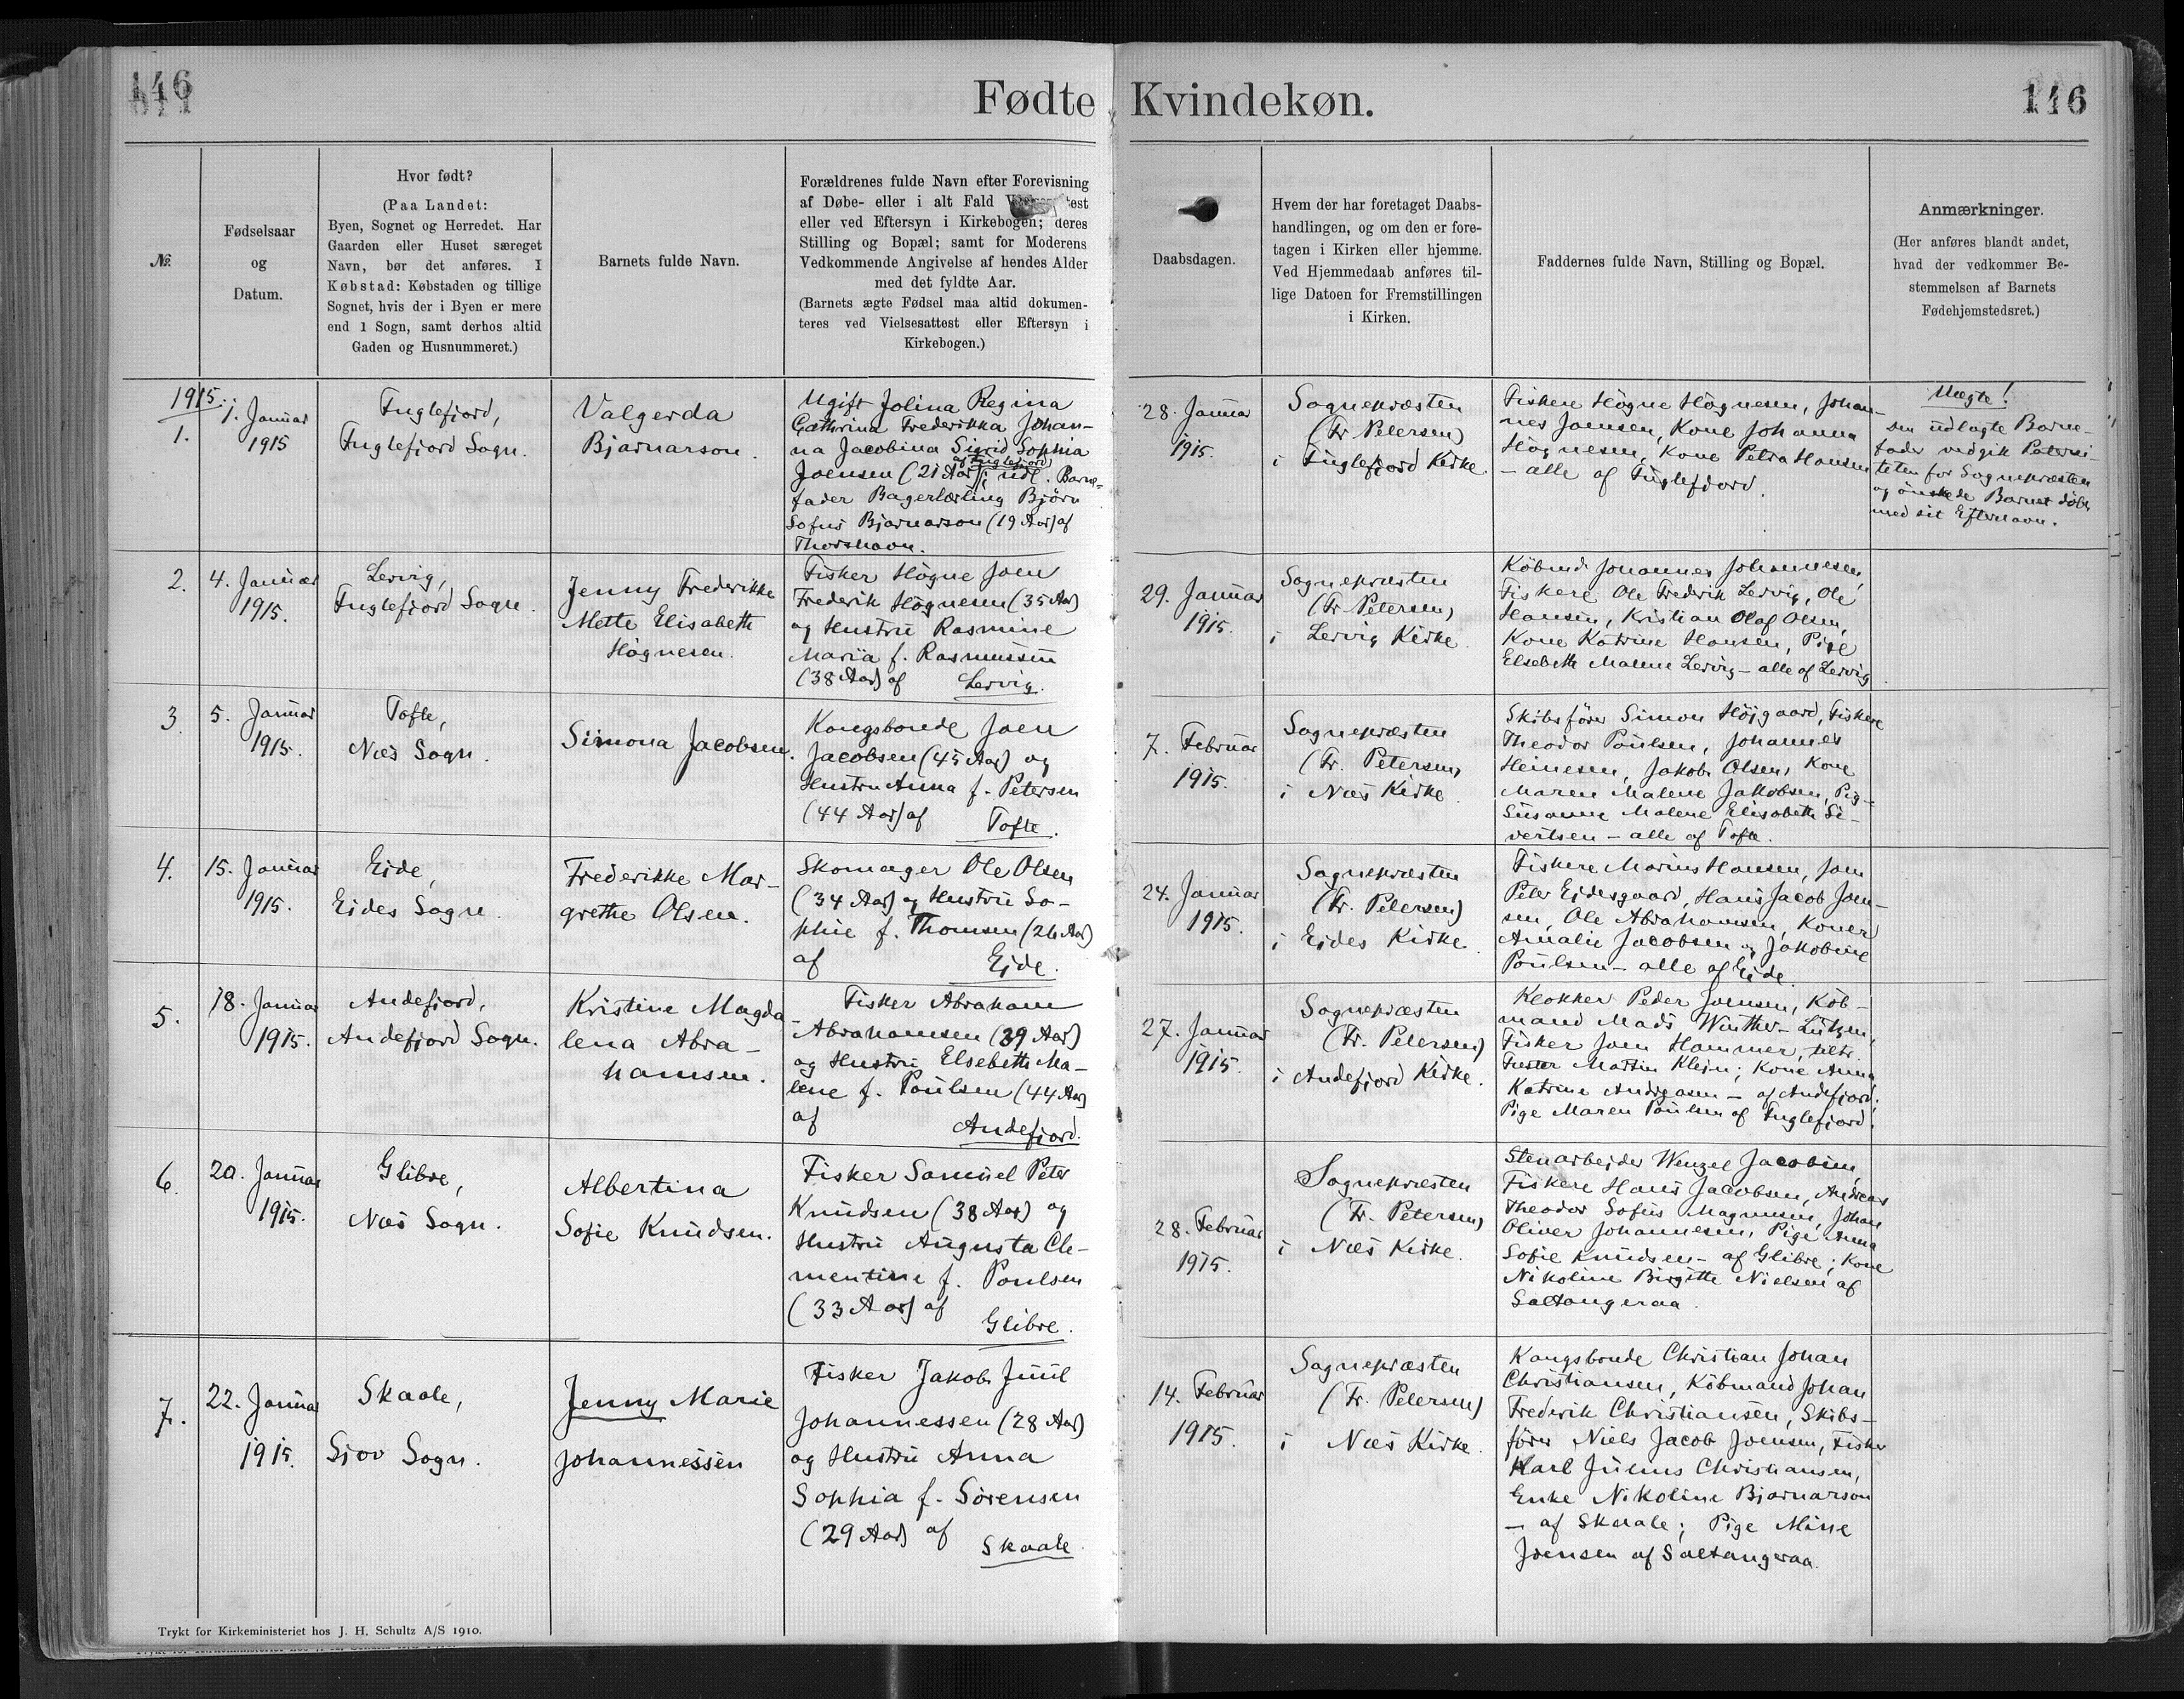 146
Fødte Kvindekøn.
146
№
Fødselsaar
og
Datum.
Hvor født?
(Paa Landet:
Byen, Sognet og Herredet. Har
Gaarden eller Huset særeget
Navn, bør det anføres. I
Købstad: Købstaden og tillige
Sognet, hvis der i Byen er mere
end 1 Sogn, samt derhos altid
Gaden og Husnummeret.)
Barnets fulde Navn.
Forældrenes fulde Navn efter Forevisning
af Døbe- eller i alt Fald
eller ved Eftersyn i Kirkebogen; deres
Stilling og Bopæl; samt for Moderens
Vedkommende Angivelse af hendes Alder
med det fyldte Aar.
(Barnets ægte Fødsel maa altid dokumen-
teres ved Vielsesattest eller Eftersyn i
Kirkebogen.)
Daabsdagen.
Hvem der har foretaget Daabs-
handlingen, og om den er fore-
tagen i Kirken eller hjemme.
Ved Hjemmedaab anføres til-
lige Datoen for Fremstillingen
i Kirken.
Faddernes fulde Navn, Stilling og Bopæl.
Anmærkninger.
(Her anføres blandt andet,
hvad der vedkommer Be-
stemmelsen af Barnets
Fødehjemstedsret.)
1915.
1.
1. Januar
1915
Fuglefjord,
Fuglefjord Sogn.
Valgerda
Bjarnarson.
Ugift Jolina Regina
Cathrina Frederikka Johan-
na Jacobina Sigrid Sophia
af Fuglefjord
Joensen (21 Aar); udl. Barne-
fader Bagerlærling Björn
Sofus Bjarnarson (19 Aar) af
Thorshavn.
28. Januar
1915.
Sognepræsten
(Fr Petersen)
i Fuglefjord Kirke.
Fiskere Högne Högnesen, Johan-
nes Joensen, Kone Johanna
Högnesen, Kone Petra Hansen
- alle af Fuglefjord.
Uægte!
Den udlagte Barne-
fader vedgik Paterni-
teten for Sognepræsten
og önskede Barnet döbt
med sit Efternavn.
2.
4. Januar
1915.
Lervig,
Fuglefjord Sogn.
Jenny Frederikke
Mette Elisabeth
Högnesen.
Fisker Högne Joen
Frederik Högnesen (35 Aar)
og Hustru Rasmine
Maria f. Rasmussen
(38 Aar) af Lervig.
29. Januar
1915.
Sognepræsten
(Fr. Petersen)
i Lervig Kirke.
Köbmd. Johannes Johannesen,
Fiskere Ole Frederik Lervig, Ole
Hansen, Kristian Olaf Olsen,
Kone Katrine Hansen, Pige
Elsebeth Malene Lervig - alle af Lervig.
3.
5. Januar
1915.
Tofte,
Næs Sogn.
Simona Jacobsen.
Kongsbonde Joen
Jacobsen (45 Aar) og
Hustru Anna f. Petersen
(44 Aar) af Tofte.
7. Februar
1915.
Sognepræsten
(Fr. Petersen)
i Næs Kirke.
Skibsförer Simon Höjgaard, Fiskere
Theodor Poulsen, Johannes
Heinesen, Jakob Olsen, Kone
Maren Malene Jakobsen, Pige
Susanne Malene Elisabeth Si-
vertsen - alle af Tofte.
4.
15. Januar
1915.
Eide,
Eides Sogn.
Frederikke Mar-
grethe Olsen.
Skomager Ole Olsen
(34 Aar) og Hustru So-
phie f. Thomsen (26 Aar)
af Eide.
24. Januar
1915.
Sognepræsten
(Fr. Petersen)
i Eides Kirke.
Fiskere Marius Hansen, Joen
Peter Ejdesgaard, Hans Jacob Joen-
sen, Ole Abrahamsen, Koner
Amalie Jacobsen og Jakobine
Poulsen - alle af Eide.
5.
18. Januar
1915.
Andefjord,
Andefjord Sogn.
Kristine Magda-
lena Abra-
hamsen.
Fisker Abraham
Abrahamsen (39 Aar)
og Hustru Elsebeth Ma-
lene f. Poulsen (44 Aar)
af Andefjord.
27. Januar
1915.
Sognepræsten
(Fr. Petersen)
i Andefjord Kirke.
Klokker Peder Joensen, Köb-
mand Mads Winther-Lützen,
Fisker Joen Hammer,
Martin Klein; Kone Anna
Katrine Andreasen - af Andefjord;
Pige Maren Poulsen af Fuglefjord.
6.
20. Januar
1915.
Glibre,
Næs Sogn.
Albertina
Sofie Knudsen.
Fisker Samuel Peter
Knudsen (38 Aar) og
Hustru Augusta Cle-
mentine f. Poulsen
(33 Aar) af Glibre.
28. Februar
1915.
Sognepræsten
(Fr. Petersen)
i Næs Kirke.
Stenarbejder Wenzel Jacobsen,
Fiskere Hans Jacobsen, Andreas
Theodor Sofus Magnusen, Johan
Oliver Johannesen, Pige Anna
Sofie Knudsen - af Glibre; Kone
Nikoline Birgitte Nielsen af
Saltangeraa.
7.
22. Januar
1915.
Skaale,
Sjov Sogn.
Jenny Marie
Johannessen
Fisker Jakob Juul
Johannessen (28 Aar)
og Hustru Anna
Sophia f. Sörensen
(29 Aar) af Skaale.
14. Februar
1915.
Sognepræsten
(Fr. Petersen)
i Næs Kirke.
Kongsbonde Christian Johan
Christiansen, Köbmand Johan
Frederik Christiansen, Skibs-
förer Niels Jacob Joensen, Fisker
Karl Julius Christiansen,
Enke Nikoline Bjarnarson
- af Skaale; Pige Mine
Joensen af Saltangeraa.
Trykt for Kirkeministeriet hos J. H. Schultz A/S 1910.